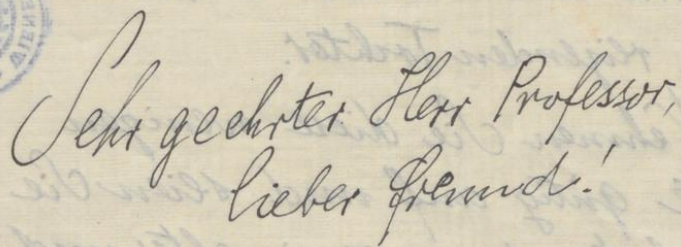 Sehr geehrter Herr Professor,
lieber Freund!